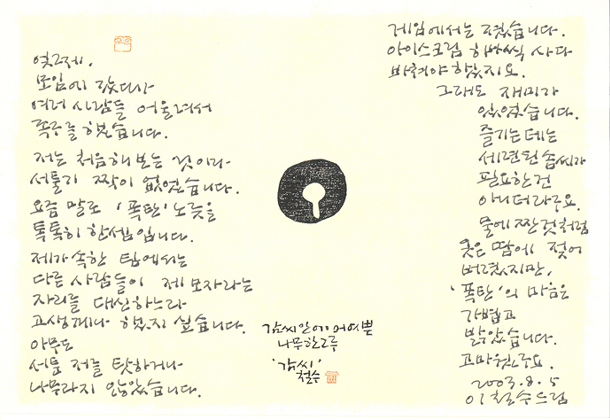 엊그제,
모임에 갔다가
여러 사람들 어울려서
족구를 했습니다.
저는 처음해보는 것이라
서툴기 짝이 없었습니다.
요즘 말로 '폭탄' 노릇을
톡톡히 한셈입니다.
제가 속한 팀에서는
다른 사람들이 제 모자라는
자리를 대신하느라
고생께나 했지 싶습니다.
아무도
서툰 저를 탓하거나
나무라지 않았습니다.
감씨안에 어여쁜
나무한그루
'감씨'
철수
게임에서는 졌습니다.
아이스크림 하나씩 사다
바쳐야 했지요.
그래도 재미가
있었습니다.
즐기는데는
세련된 솜씨가
필요한건
아니더라구요.
물에 빤 것처럼
옷은 땀에 젖어
버렸지만,
'폭탄'의 마음은
가볍고
밝았습니다.
고마웠구요.
2003. 8. 5
이철수드림